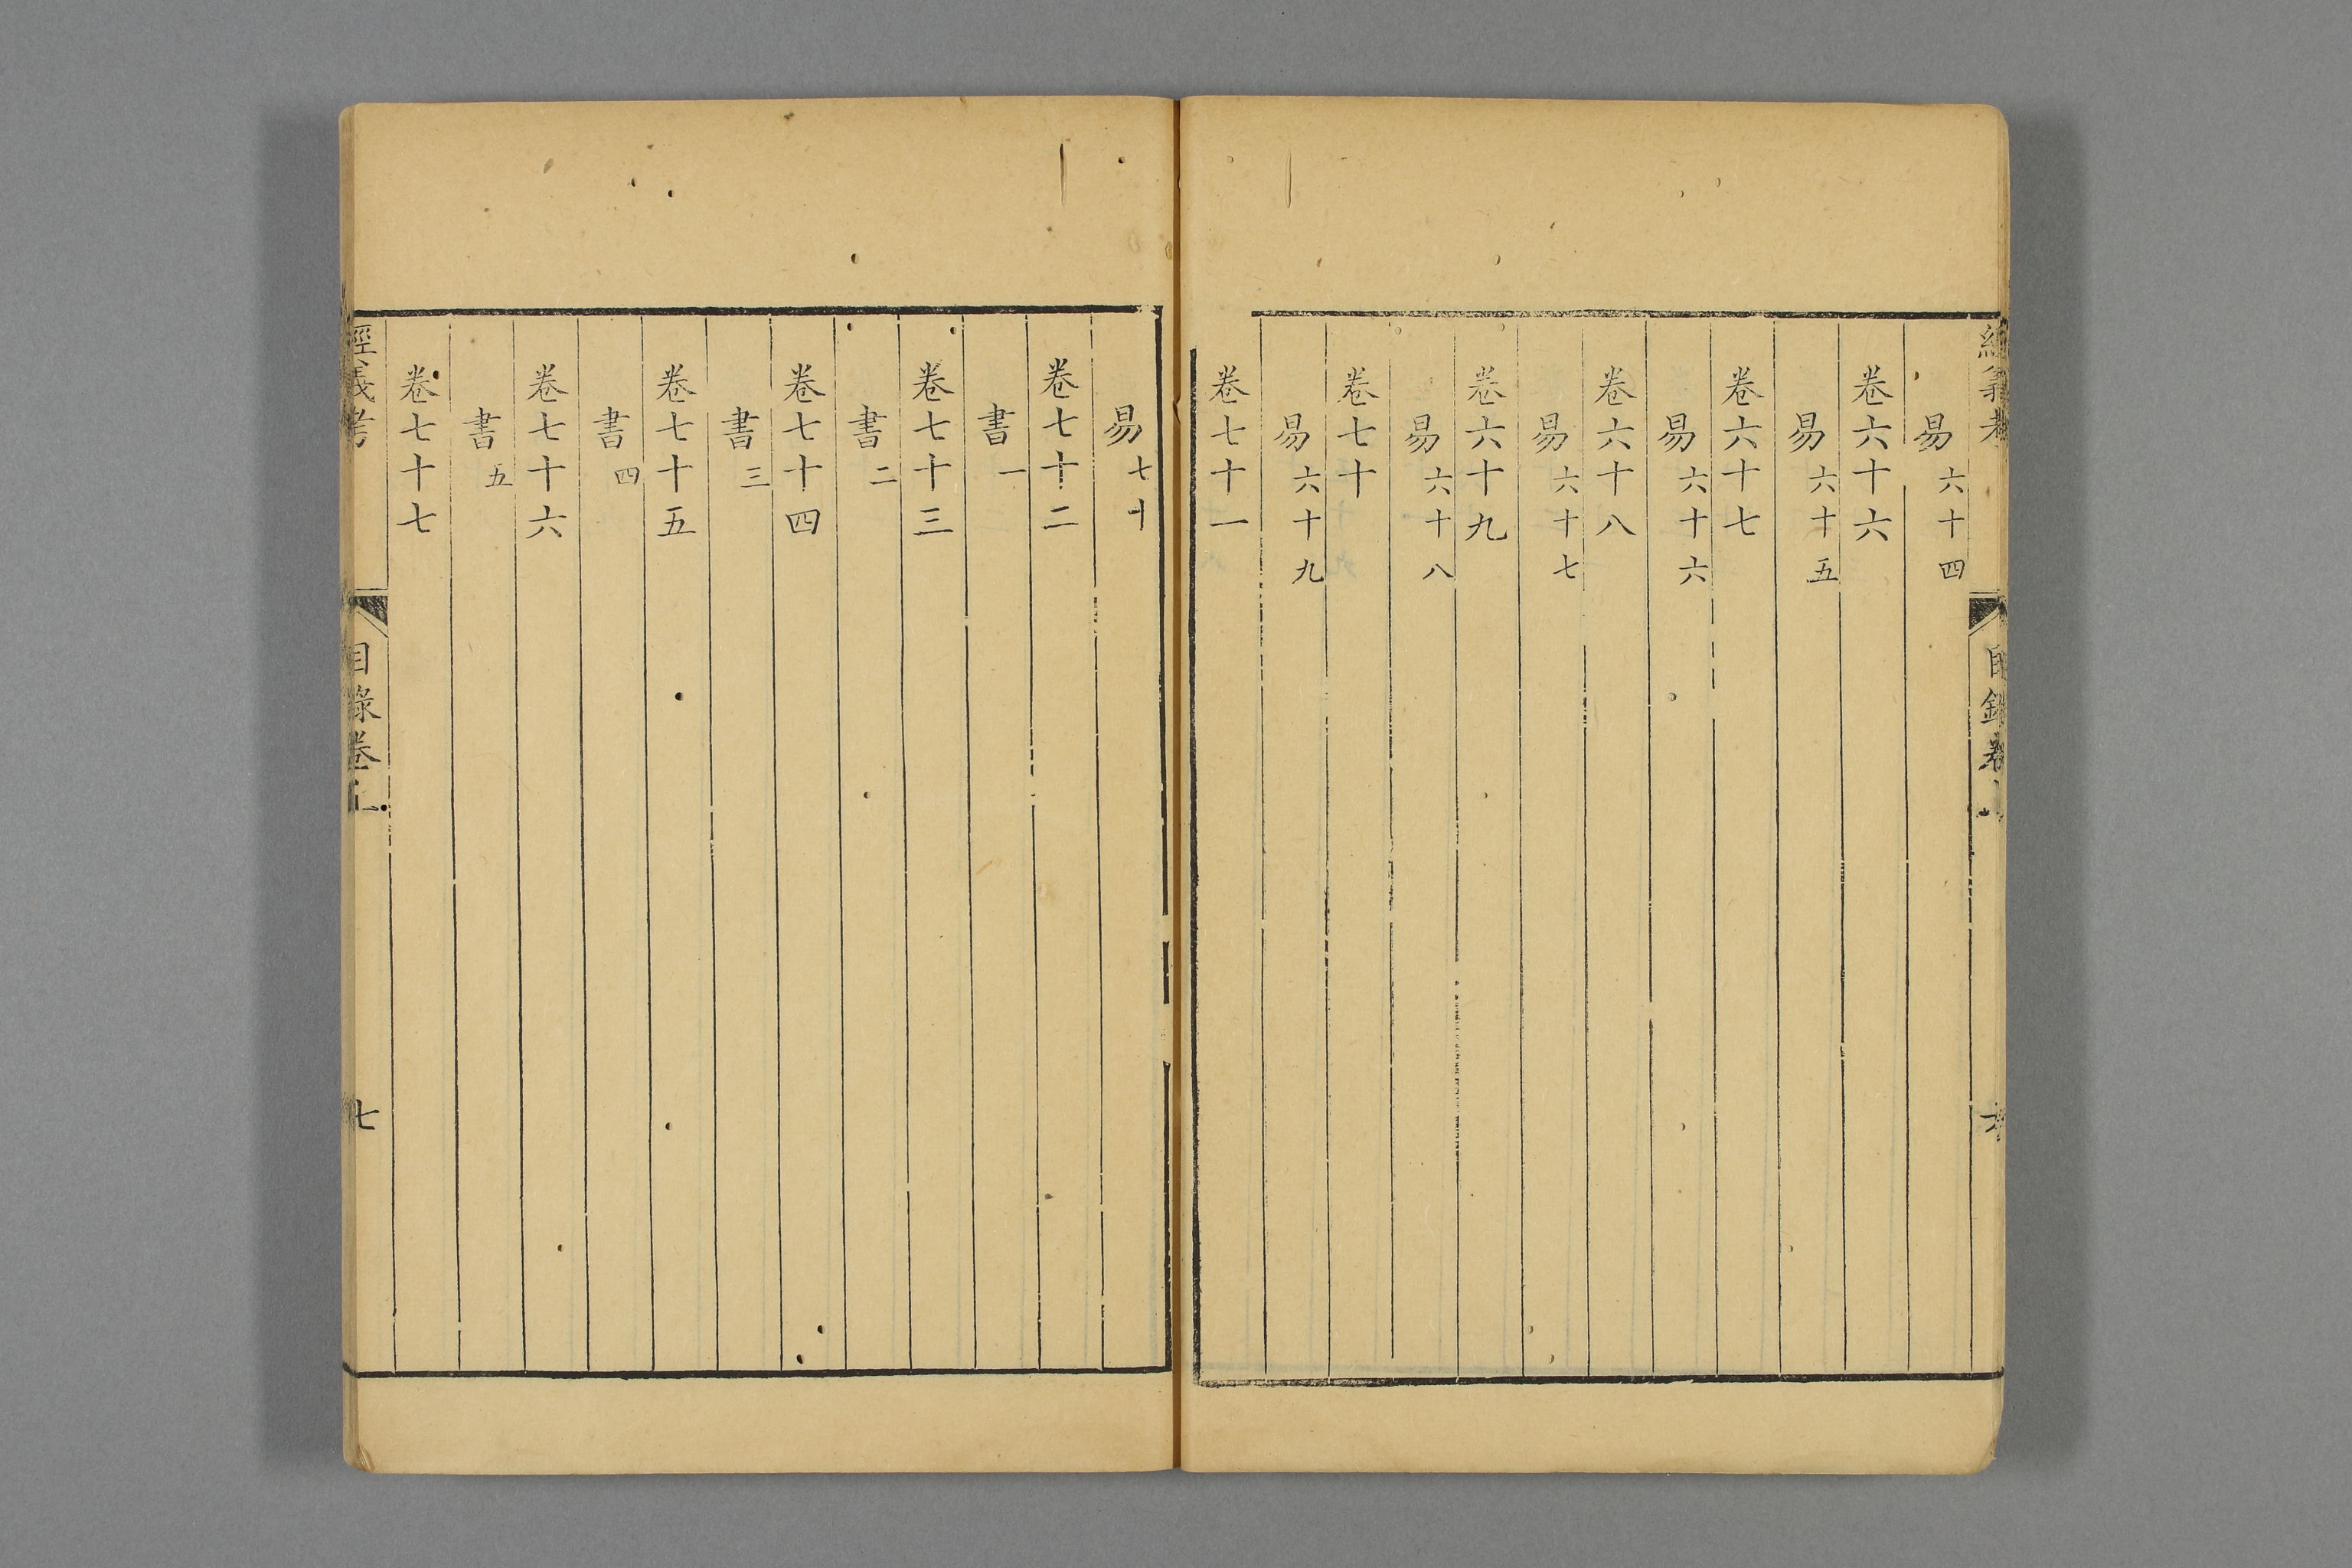 易六十四
卷六十六
易六十五
卷六十七
易六十六
卷六十八
易六十七
卷六十九
易六十八
卷七十
易六十九
卷七十一
易七十
卷七十二
書一
卷七十三
書二
卷七十四
書三
卷七十五
書四
卷七十六
書五
卷七十七
經義考
目錄卷上
七